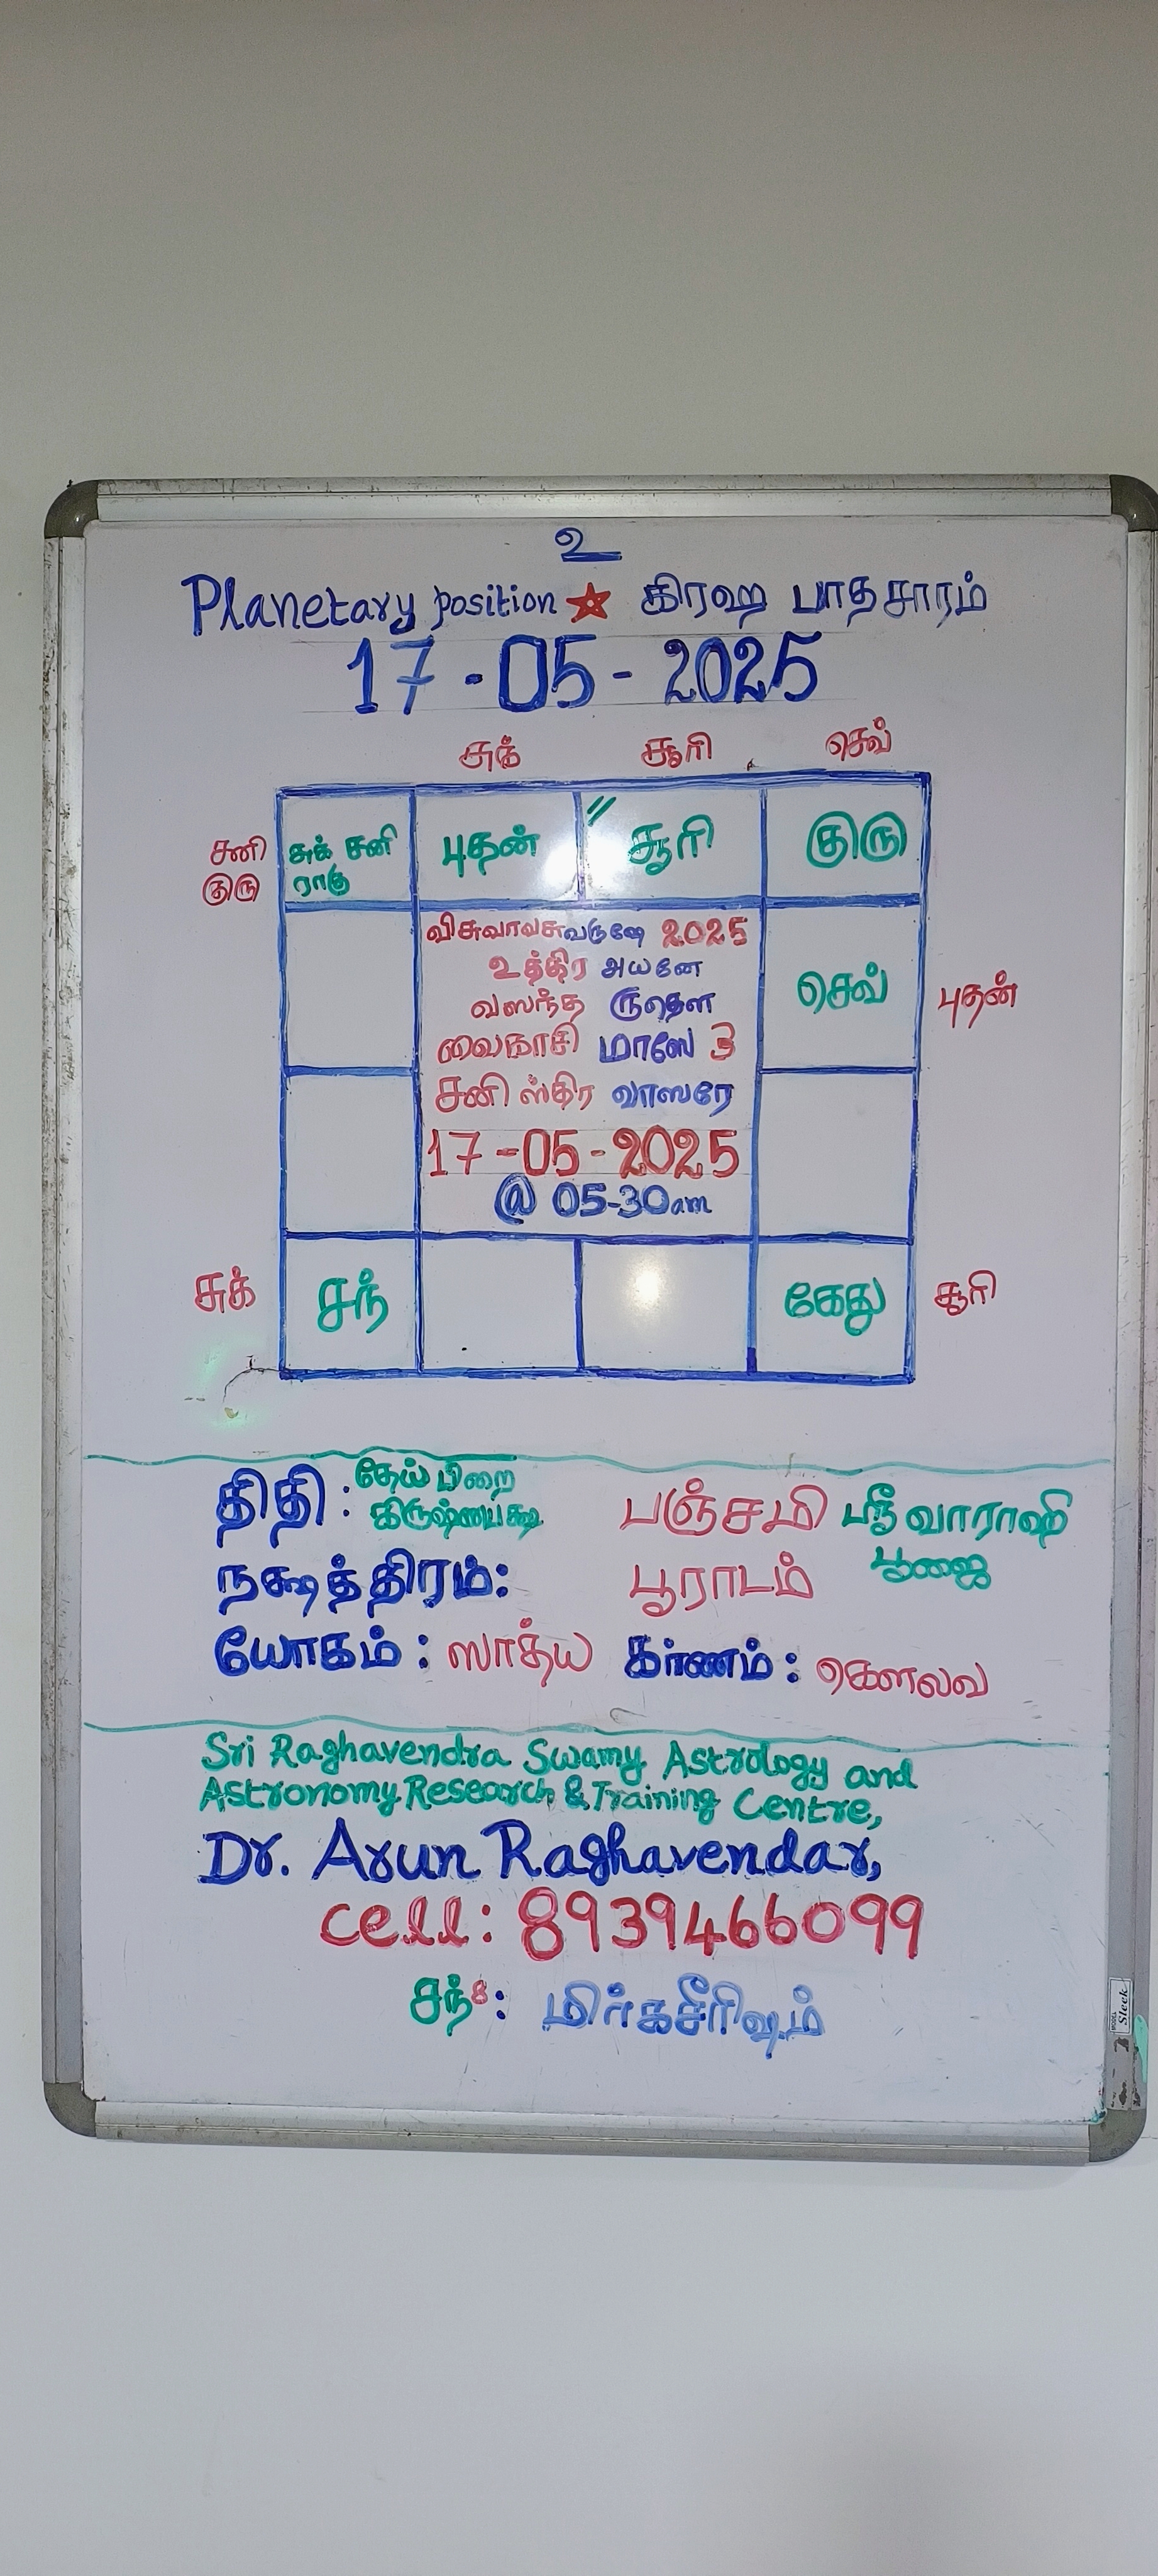 உ
Planetary position ★ கிரஹ பாதசாரம்
17-05-2025
சுக் சூரி செவ்
சனி குரு
சுக் சனி ராகு
புதன்
சூரி
குரு
விசுவாவசுவருஷே 2025
உத்திர அயனே
வஸந்த ருதௌ
வைகாசி மாஸே 3
சனி ஸ்திர வாஸரே
17-05-2025
@ 05-30am
செவ்
புதன்
சுக்
சந்
கேது
சூரி
திதி : தேய் பிறை கிருஷ்ணபக்ஷ பஞ்சமி ஸ்ரீ வாராஹி பூஜை
நக்ஷத்திரம்: பூராடம்
யோகம் : ஸாத்ய கர்ணம் : கௌலவ
Sri Raghavendra Swamy Astrology and
Astronomy Research & Training Centre,
Dr. Arun Raghavendar,
cell: 8939466099
சந்8: மிர்கசீரிஷம்
Sleek